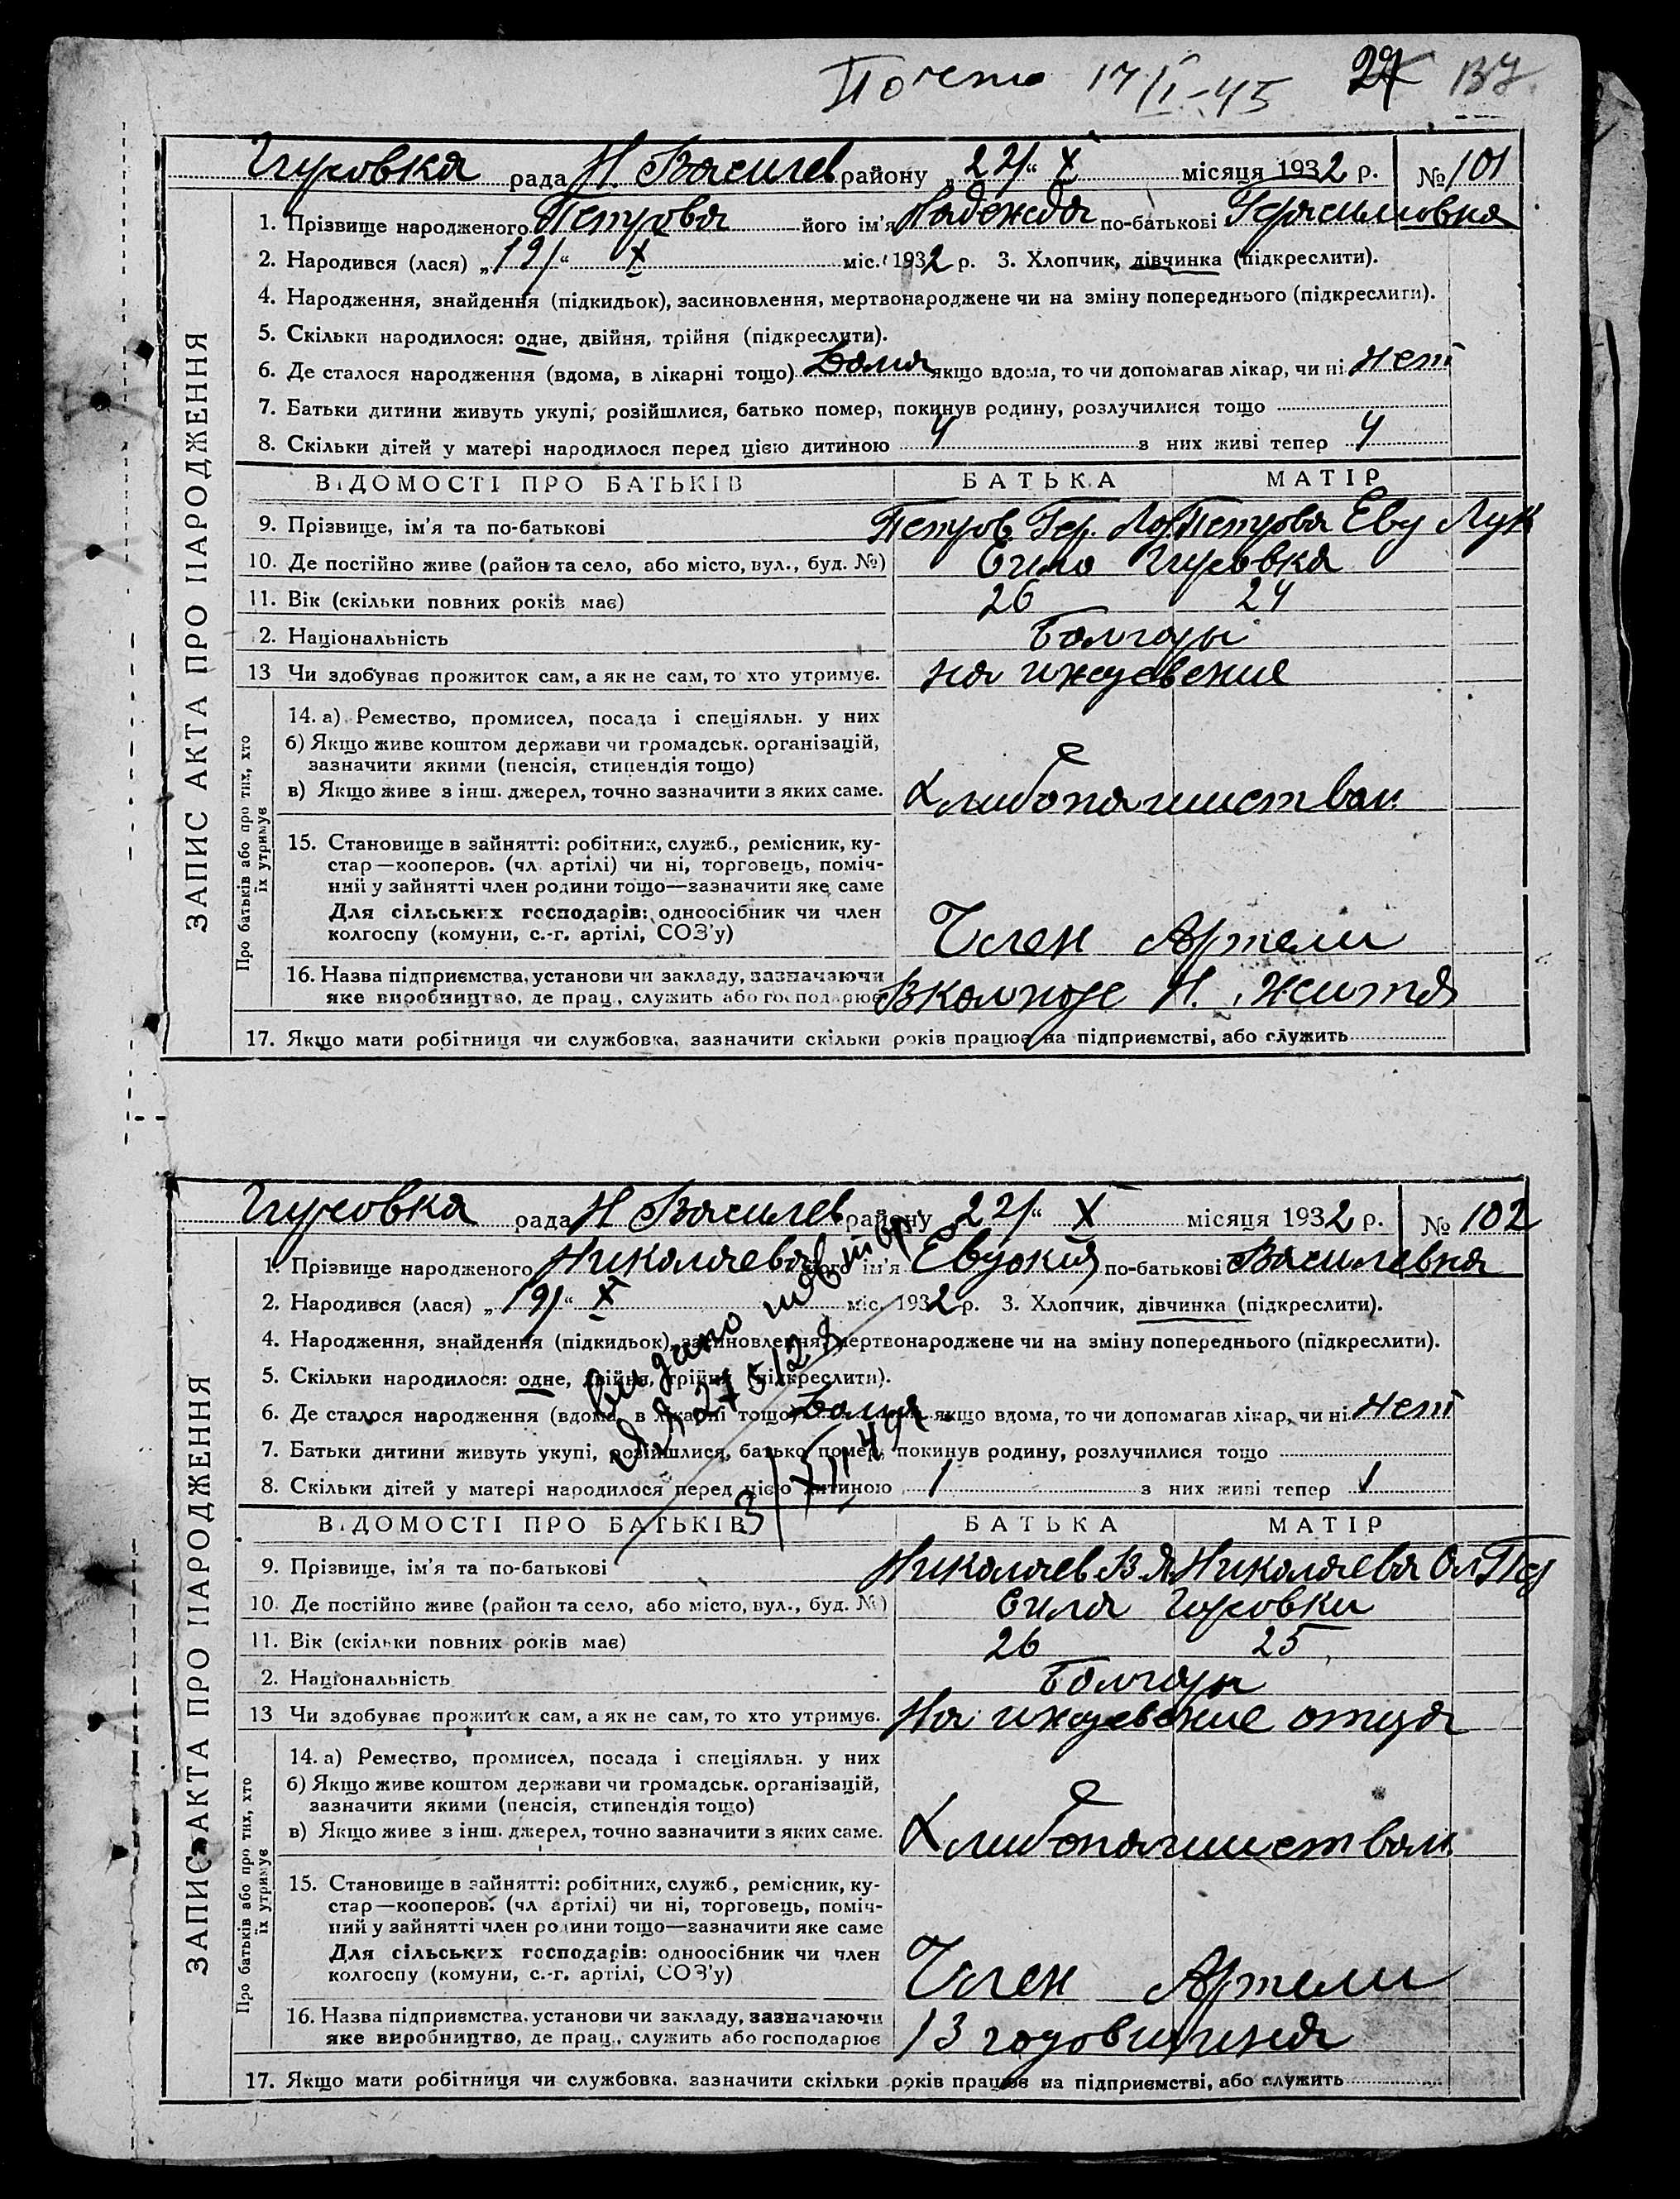 17/I-45 27
Гуровка рада Н. Василев району „22/“ X місяця 1932 р. № 101
ЗАПИС АКТА ПРО НАРОДЖЕННЯ
1. Прізвище народженого Петрова його ім'я Надежда по-батькові Герасимовна
2. Народився (лася) „19/“ X міс. 1932 р. 3. Хлопчик, дівчинка (підкреслити).
4. Народження, знайдення (підкидьок), засиновлення, мертвонароджене чи на зміну попереднього (підкреслити).
5. Скільки народилося: одне, двійня, трійня (підкреслити).
6. Де сталося народження (вдома, в лікарні тощо) Дома якщо вдома, то чи допомагав лікар, чи ні нет
7. Батьки дитини живуть укупі, розійшлися, батько помер, покинув родину, розлучилися тощо
8. Скільки дітей у матері народилося перед цією дитиною 4 з них живі тепер 4
ВІДОМОСТІ ПРО БАТЬКІВ БАТЬКА МАТІР
9. Прізвище, ім'я та по-батькові Петров Гер. Петрова Еву Лук
10. Де постійно живе (район та село, або місто, вул., буд. №) Сило Гуровка
11. Вік (скільки повних років має) 26 24
2. Національність Болгары
13 Чи здобуває прожиток сам, а як не сам, то хто утримує. на иждевение
Про батьків або про тих, хто їх утримує
14. а) Ремество, промисел, посада і спеціяльн. у них
б) Якщо живе коштом держави чи громадськ. організацій,
зазначити якими (пенсія, стипендія тощо)
в) Якщо живе з інш. джерел, точно зазначити з яких саме. Хлибопашиством
15. Становище в зайнятті: робітник, служб., ремісник, ку-
стар—кооперов. (чл. артілі) чи ні, торговець, поміч-
ний у зайнятті член родини тощо—зазначити яке саме
Для сільських господарів: одноосібник чи член
колгоспу (комуни, с.-г. артілі, СОЗ'у) Член Артели
16. Назва підприємства, установи чи закладу, зазначаючи
яке виробництво, де прац., служить або господарює Вколхозе Н. Життя
17. Якщо мати робітниця чи службовка, зазначити скільки років працює на підприємстві, або служить
Гуровка рада Н Василев району „22/“ X місяця 1932 р. № 102
ЗАПИС АКТА ПРО НАРОДЖЕННЯ
1. Прізвище народженого Николаева його ім'я Евдокия по-батькові Василевна
2. Народився (лася) „19/“ X міс. 1932 р. 3. Хлопчик, дівчинка (підкреслити).
4. Народження, знайдення (підкидьок), засиновлення, мертвонароджене чи на зміну попереднього (підкреслити).
5. Скільки народилося: одне, двійня, трійня (підкреслити).
6. Де сталося народження (вдома, в лікарні тощо) Дома якщо вдома, то чи допомагав лікар, чи ні нет
7. Батьки дитини живуть укупі, розійшлися, батько помер, покинув родину, розлучилися тощо
8. Скільки дітей у матері народилося перед цією дитиною 1 з них живі тепер 1
Видано повтор
3/XII 49
ВІДОМОСТІ ПРО БАТЬКІВ БАТЬКА МАТІР
9. Прізвище, ім'я та по-батькові Николаев В. Николаева
10. Де постійно живе (район та село, або місто, вул., буд. №) Сила Гуровки
11. Вік (скільки повних років має) 26 25
2. Національність Болгары
13 Чи здобуває прожиток сам, а як не сам, то хто утримує. На иждевение отца
Про батьків або про тих, хто їх утримує
14. а) Ремество, промисел, посада і спеціяльн. у них
б) Якщо живе коштом держави чи громадськ. організацій,
зазначити якими (пенсія, стипендія тощо)
в) Якщо живе з інш. джерел, точно зазначити з яких саме. Хлибопашиством
15. Становище в зайнятті: робітник, служб., ремісник, ку-
стар—кооперов. (чл артілі) чи ні, торговець, поміч-
ний у зайнятті член родини тощо—зазначити яке саме
Для сільських господарів: одноосібник чи член
колгоспу (комуни, с.-г. артілі, СОЗ'у) Член Артели
16. Назва підприємства, установи чи закладу, зазначаючи
яке виробництво, де прац., служить або господарює 13 годовщина
17. Якщо мати робітниця чи службовка, зазначити скільки років працює на підприємстві, або служить